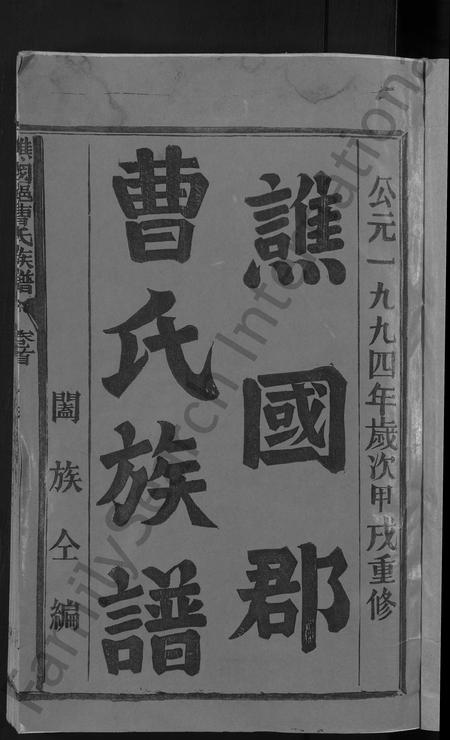 公元一九九四年歲次甲戌重修
譙國郡
曹氏族譜
闔族仝編
曹氏族譜
卷首
FamilySearch International